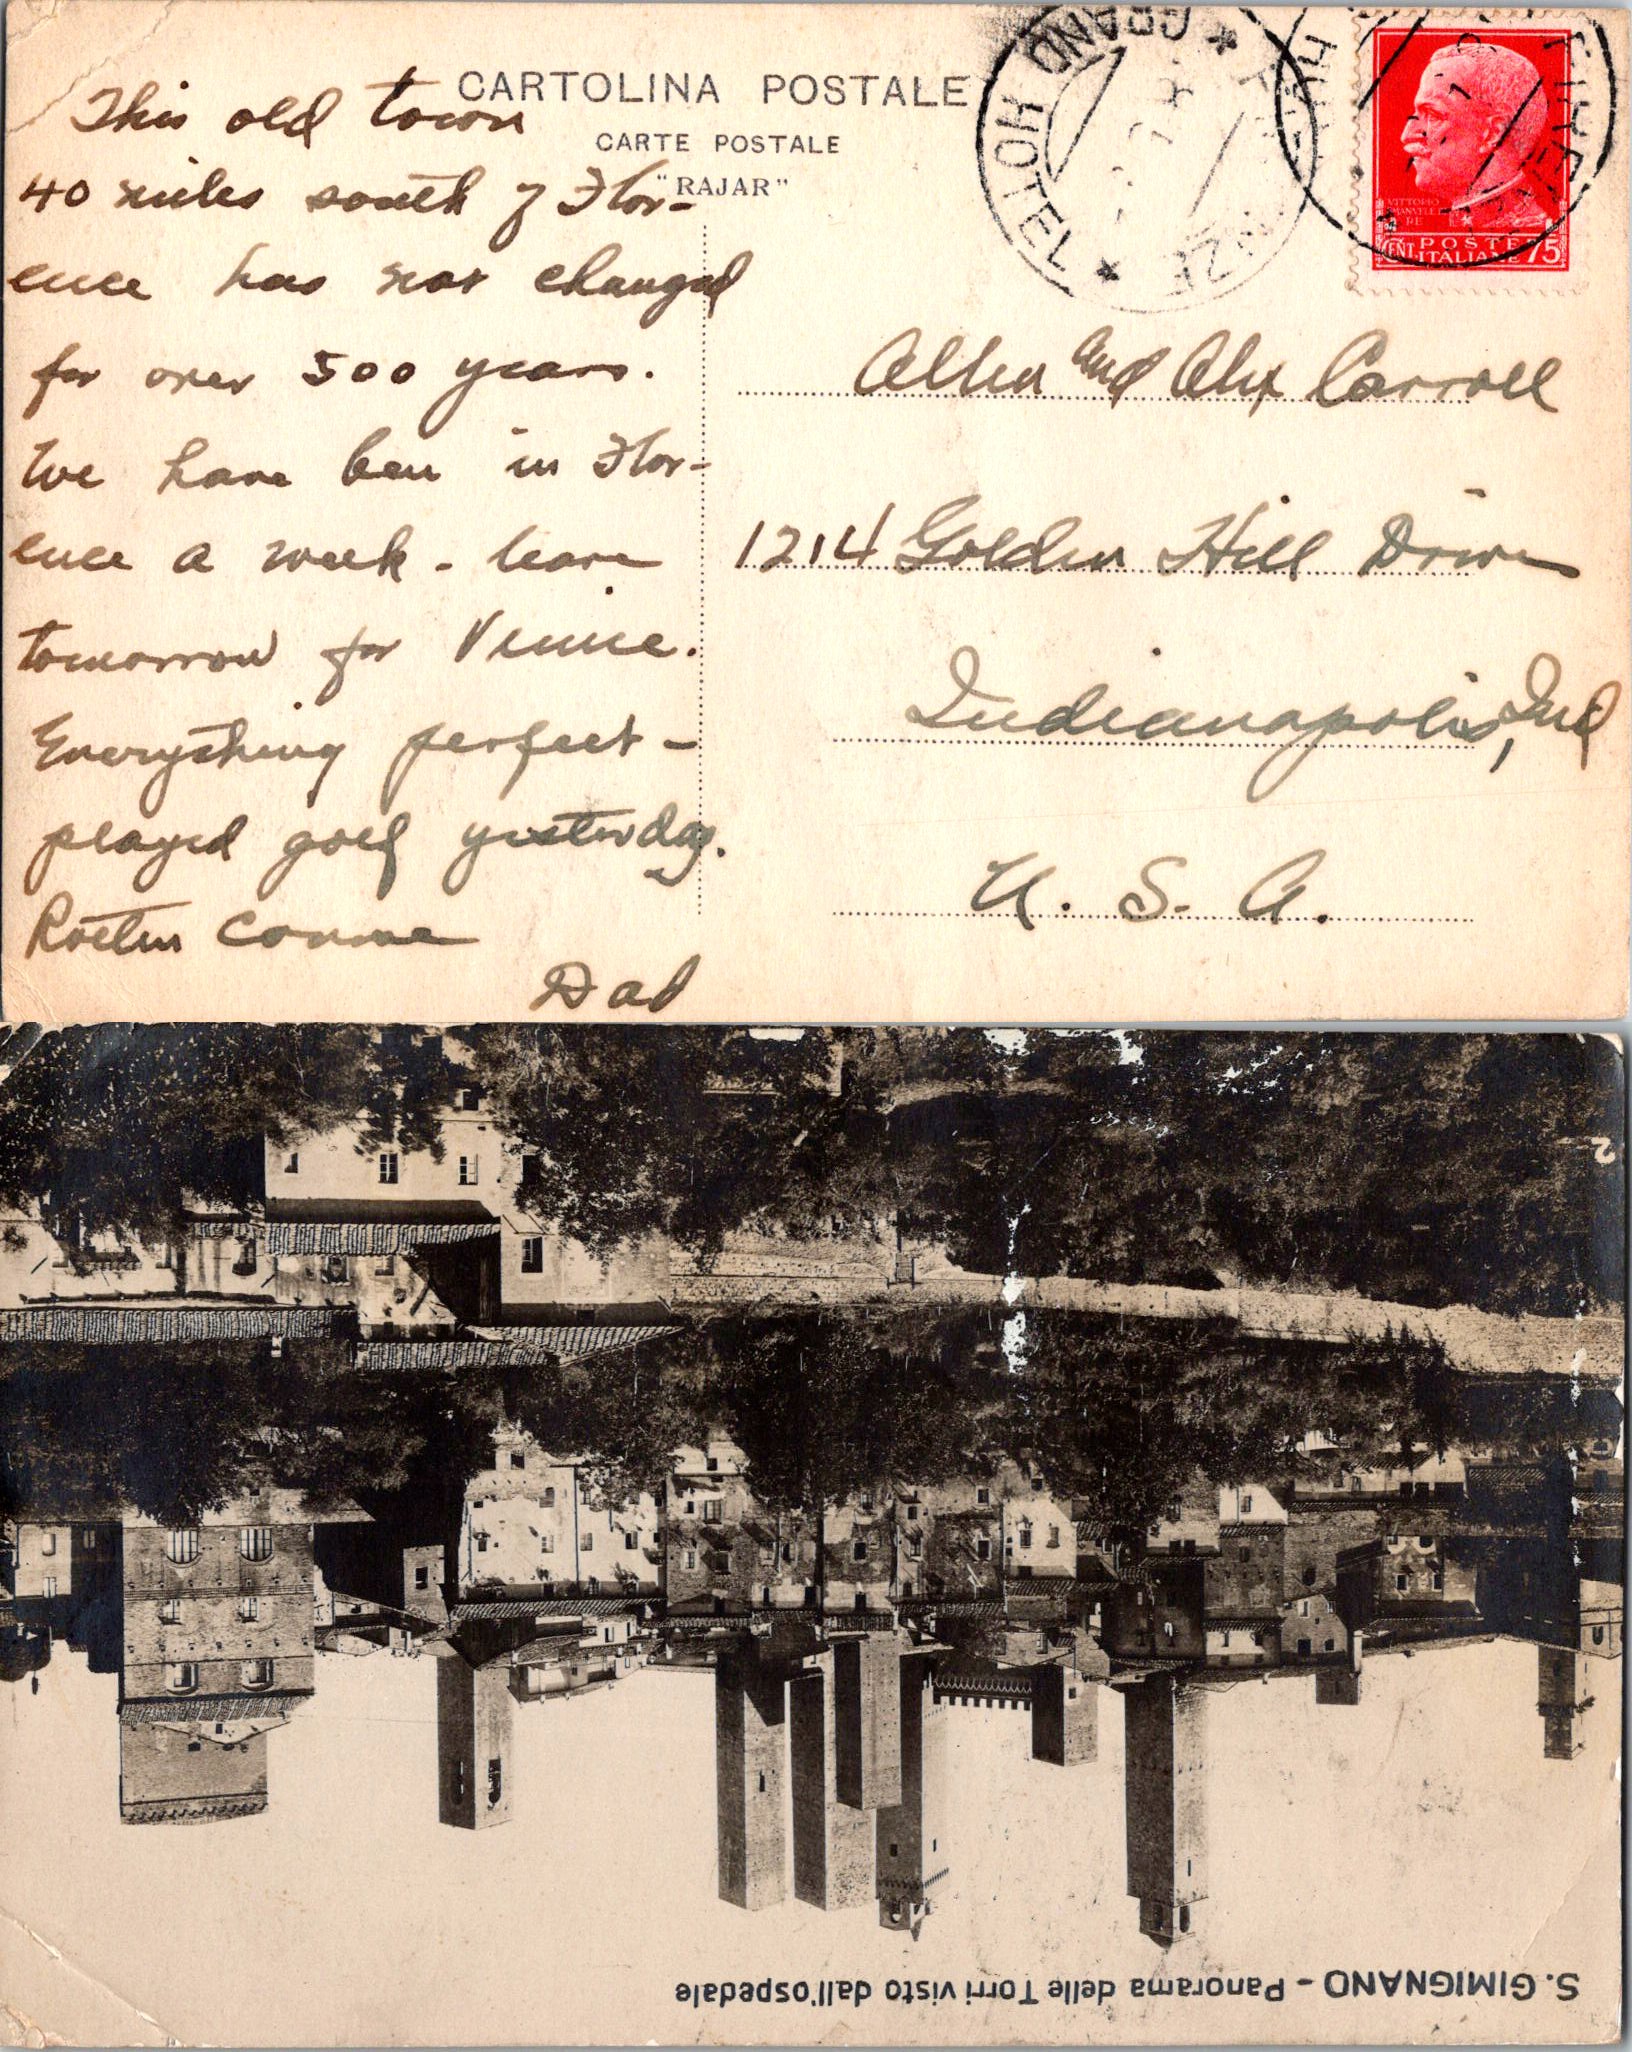 CARTOLINA POSTALE
CARTE POSTALE
"RAJAR"
This old town
40 miles south of Flor-
ence has not changed
for over 500 years.
We have been in Flor-
ence a week - leave
tomorrow for Venice.
Everything perfect -
played golf yesterday.
Dad
GRAND HOTEL
FIRENZE
VITTORIO
EMANVELE
RE
POSTE
CENT. ITALIANE 75
and Alex Carroll
1214 Golden Hill Drive
Indianapolis, Ind
U. S. A.
2
S. GIMIGNANO - Panorama delle Torri visto dall'ospedale